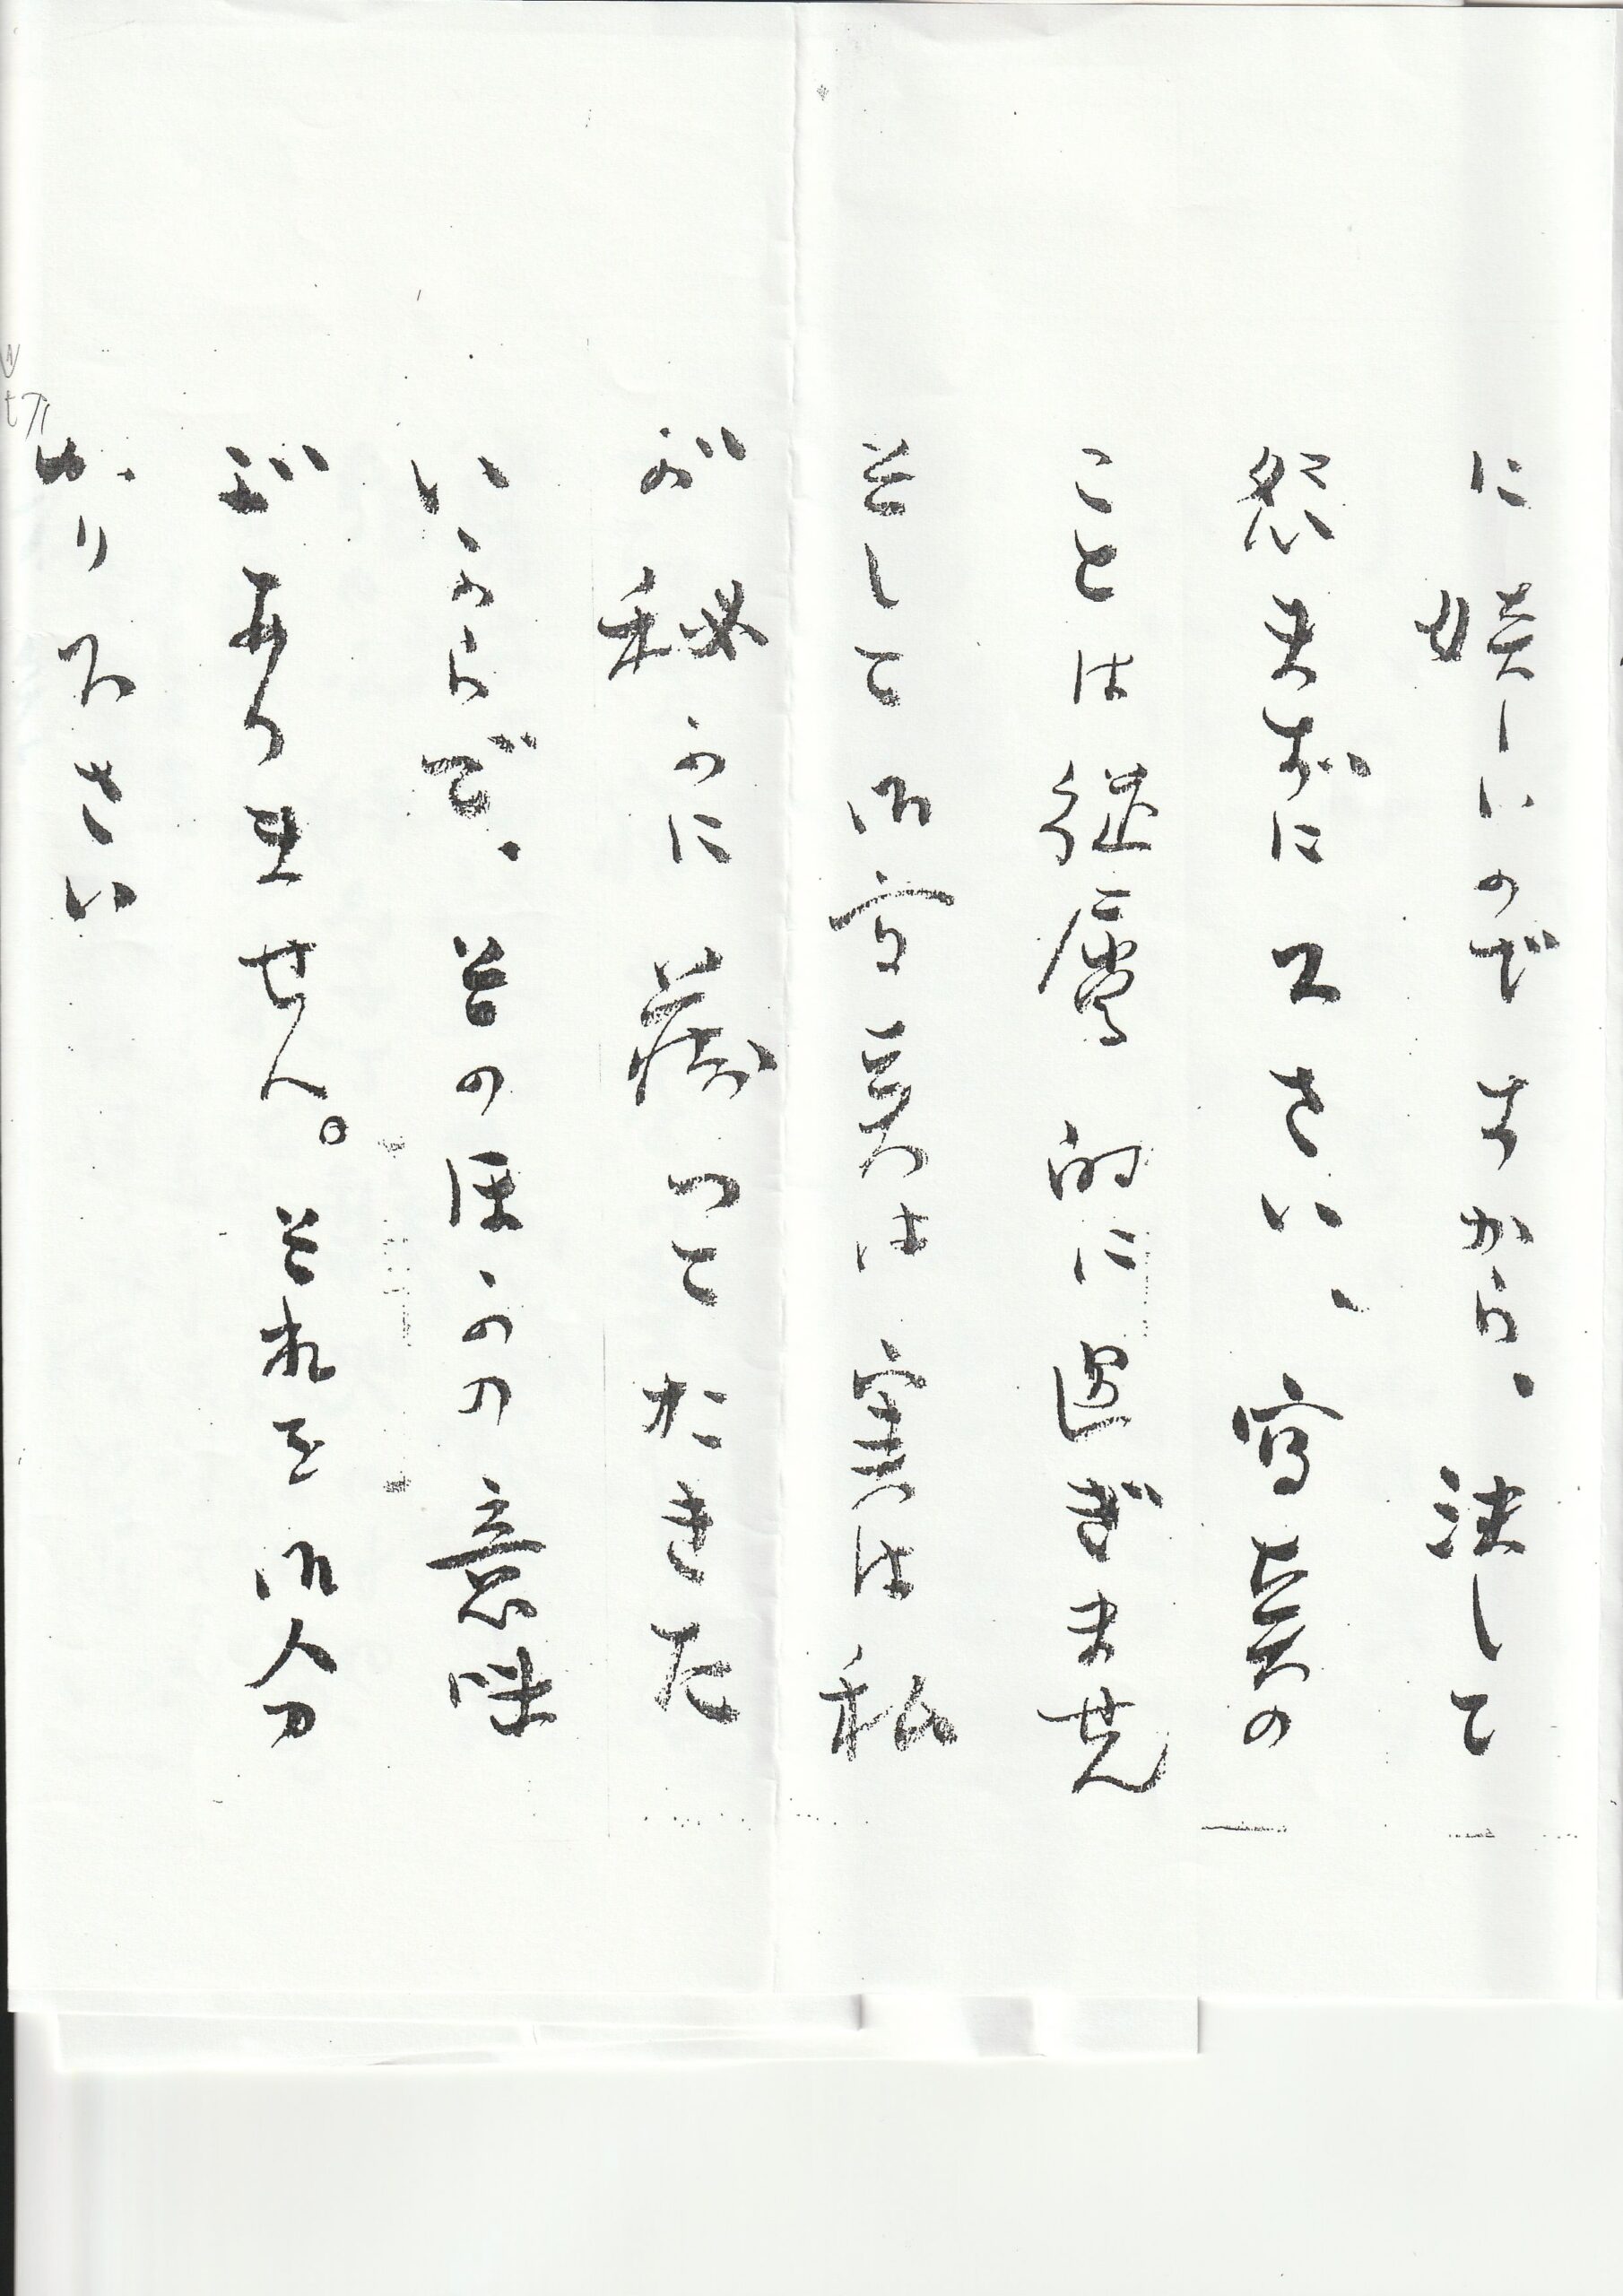 に嬉しいのですから、決して
怨まずに下さい、寫真の
ことは従屬的に過ぎません
そして御写真は実は私
が秘かに蔵つておきた
いからで、そのほかの意味
がありません。それを御分
かり下さい